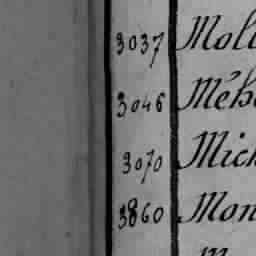 3037 Moli
3046 Méh
3070 Mich
3860 Mon